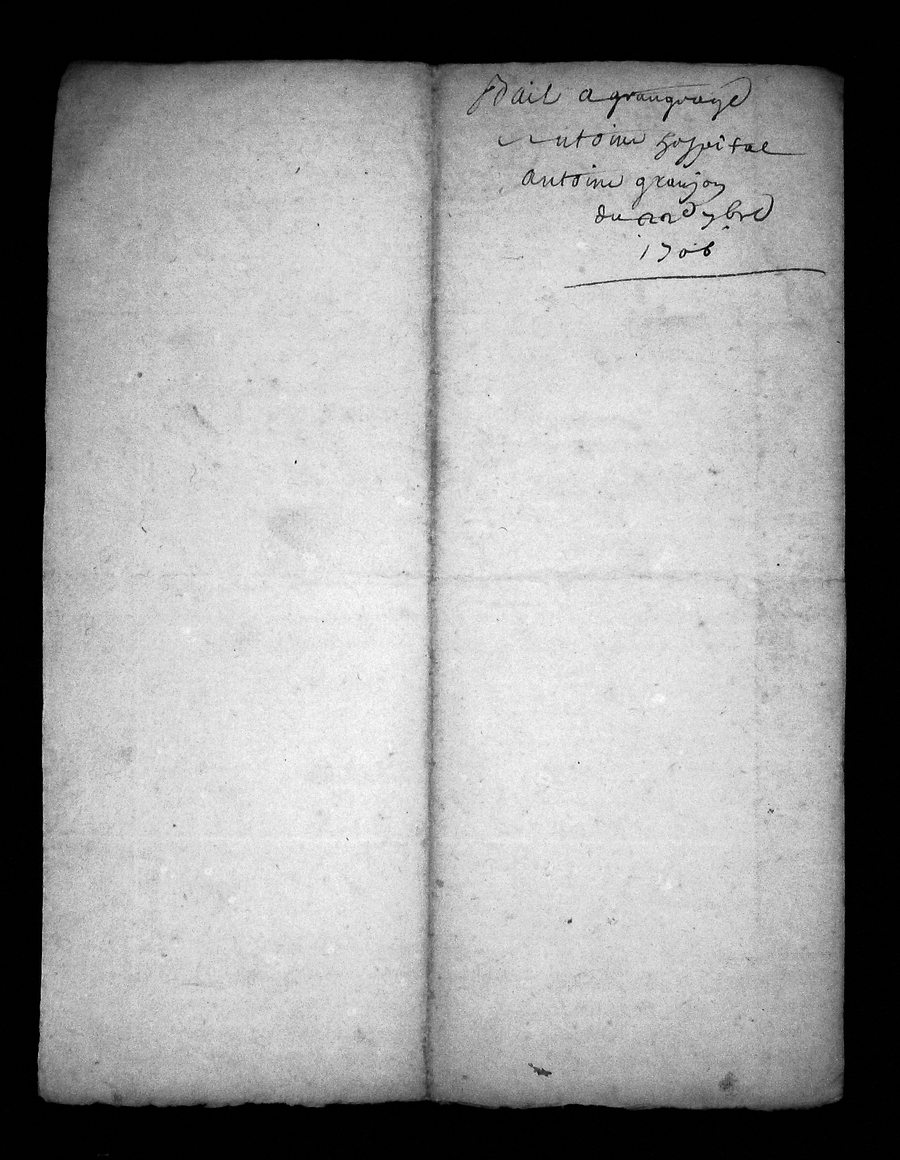 Bail a grangeage
Antoine hospital
antoine granjon
du 7bre
1706